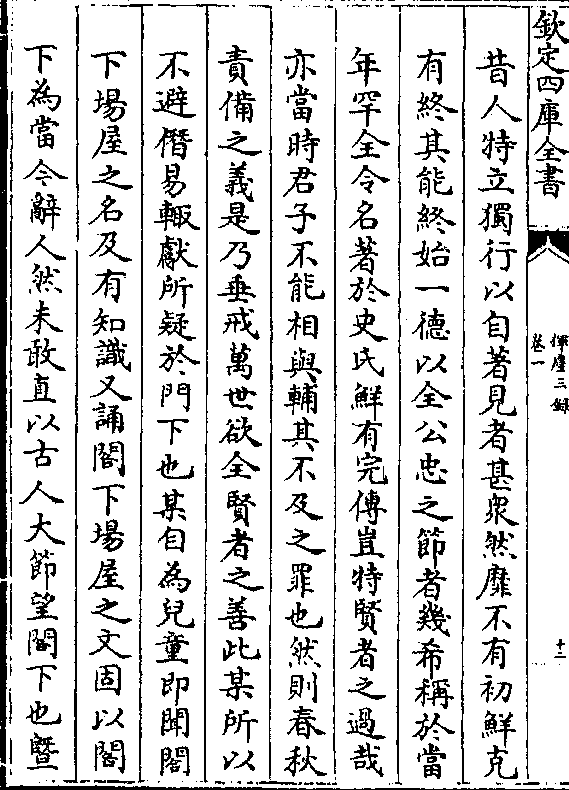 欽定四庫全書
揮麈三録
卷一
十二
昔人特立獨行以自著見者甚衆然靡不有初鮮克
有終其能終始一德以全公忠之節者幾希稱於當
年罕全令名著於史氏鮮有完傳豈特賢者之過哉
亦當時君子不能相與輔其不及之罪也然則春秋
責備之義是乃垂戒萬世欲全賢者之善此某所以
不避僭易輙獻所疑於門下也某自為兒童即聞閣
下場屋之名及有知識又誦閣下場屋之文固以閣
下為當今辭人然未敢直以古人大節望閣下也暨